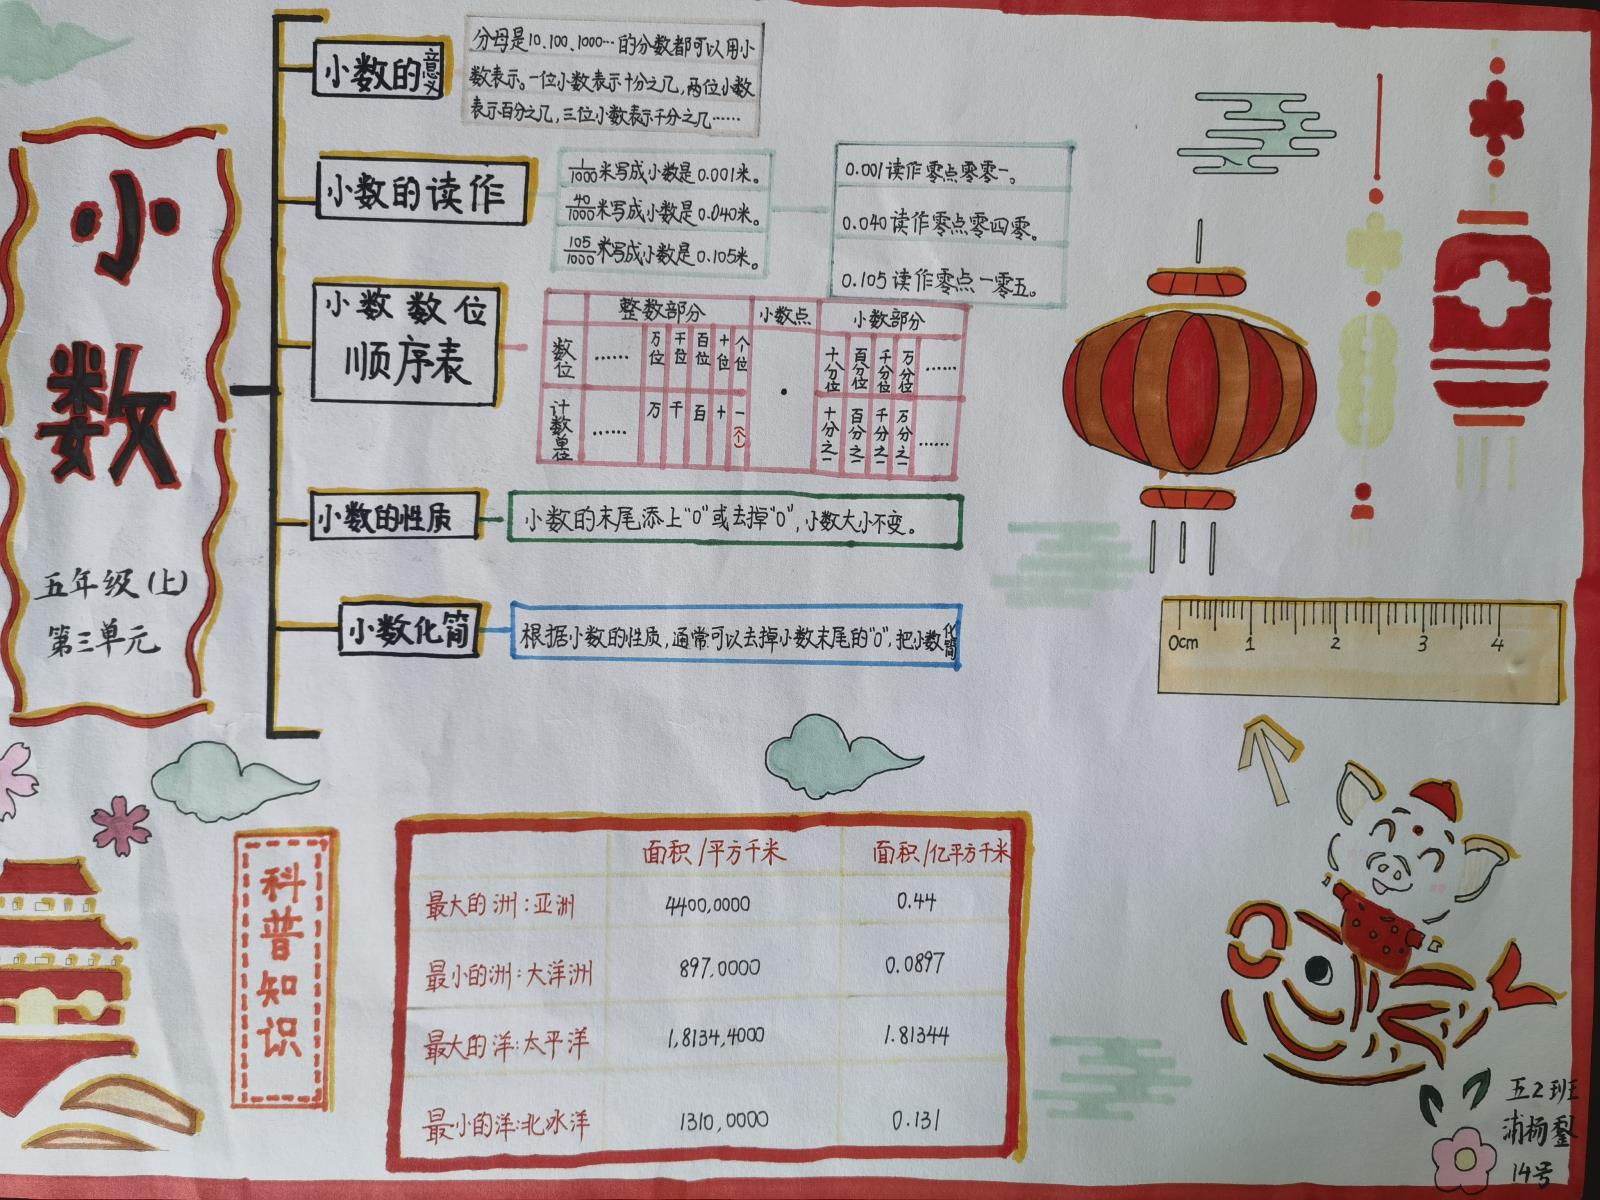 小数
五年级(上)
第三单元
小数的意义
分母是10、100、1000…的分数都可以用小
数表示。一位小数表示十分之几,两位小数
表示百分之几,三位小数表示千分之几……
小数的读作
1/1000米写成小数是0.001米。
40/1000米写成小数是0.040米。
105/1000米写成小数是0.105米。
0.001读作零点零零一。
0.040读作零点零四零。
0.105读作零点一零五。
小数数位
顺序表
整数部分 小数点 小数部分
数位 …… 万位 千位 百位 十位 个位 · 十分位 百分位 千分位 万分位 ……
计数单位 …… 万 千 百 十 一(个) 十分之一 百分之一 千分之一 万分之一 ……
小数的性质
小数的末尾添上“0”或去掉“0”,小数大小不变。
小数化简
根据小数的性质,通常可以去掉小数末尾的“0”,把小数化简
0cm 1 2 3 4
科普知识
面积/平方千米 面积/亿平方千米
最大的洲:亚洲 4400,0000 0.44
最小的洲:大洋洲 897,0000 0.0897
最大的洋:太平洋 1,8134,4000 1.81344
最小的洋:北冰洋 1310,0000 0.131
五2班
14号